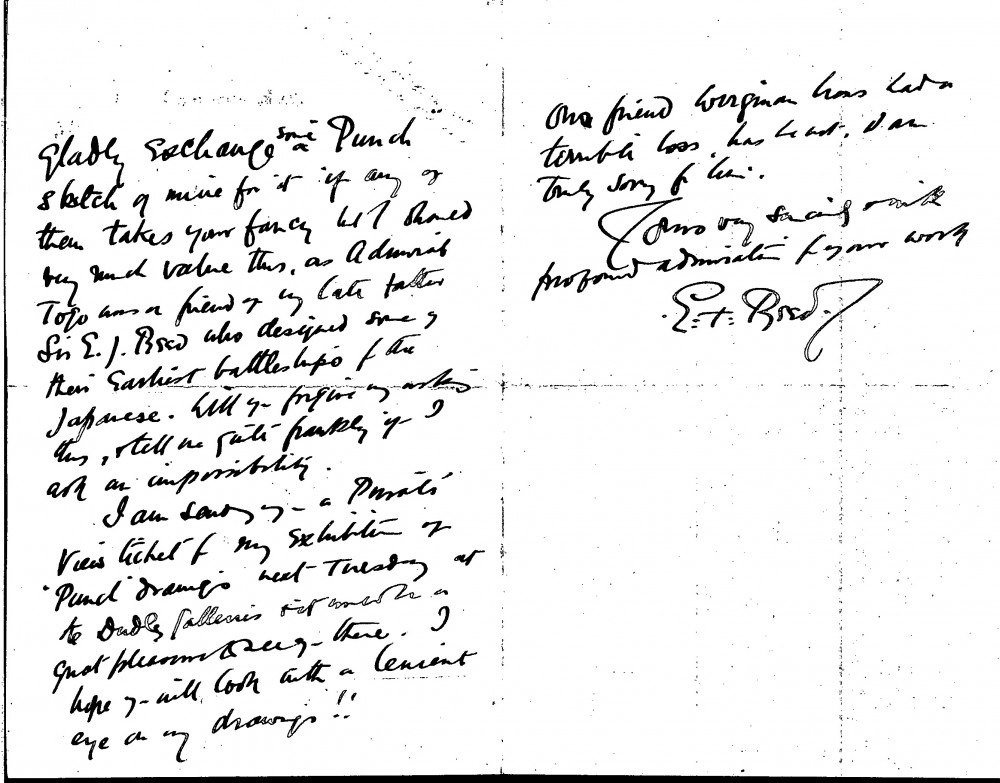 Gladly Exchange some "Punch"
sketch of mine for it if any of
them takes your fancy but I should
very much value this, as Admiral
Togo was a friend of my late father
Sir E. J. Reed who designed some of
their Earliest battleships for the
Japanese. Will you forgive my asking
this, & tell me quite frankly if I
ask an impossibility.
I am sending you a Private
View ticket for my Exhibition of
"Punch" drawings next Tuesday at
the Dudley Galleries & it would be a
great pleasure to see you there. I
hope you will look with a lenient
eye on my drawings!!
Our friend Wirgman has had a
terrible loss, has he not. I am
truly sorry for him.
Yours very sincerely with
profound admiration for your work
E. T. Reed.